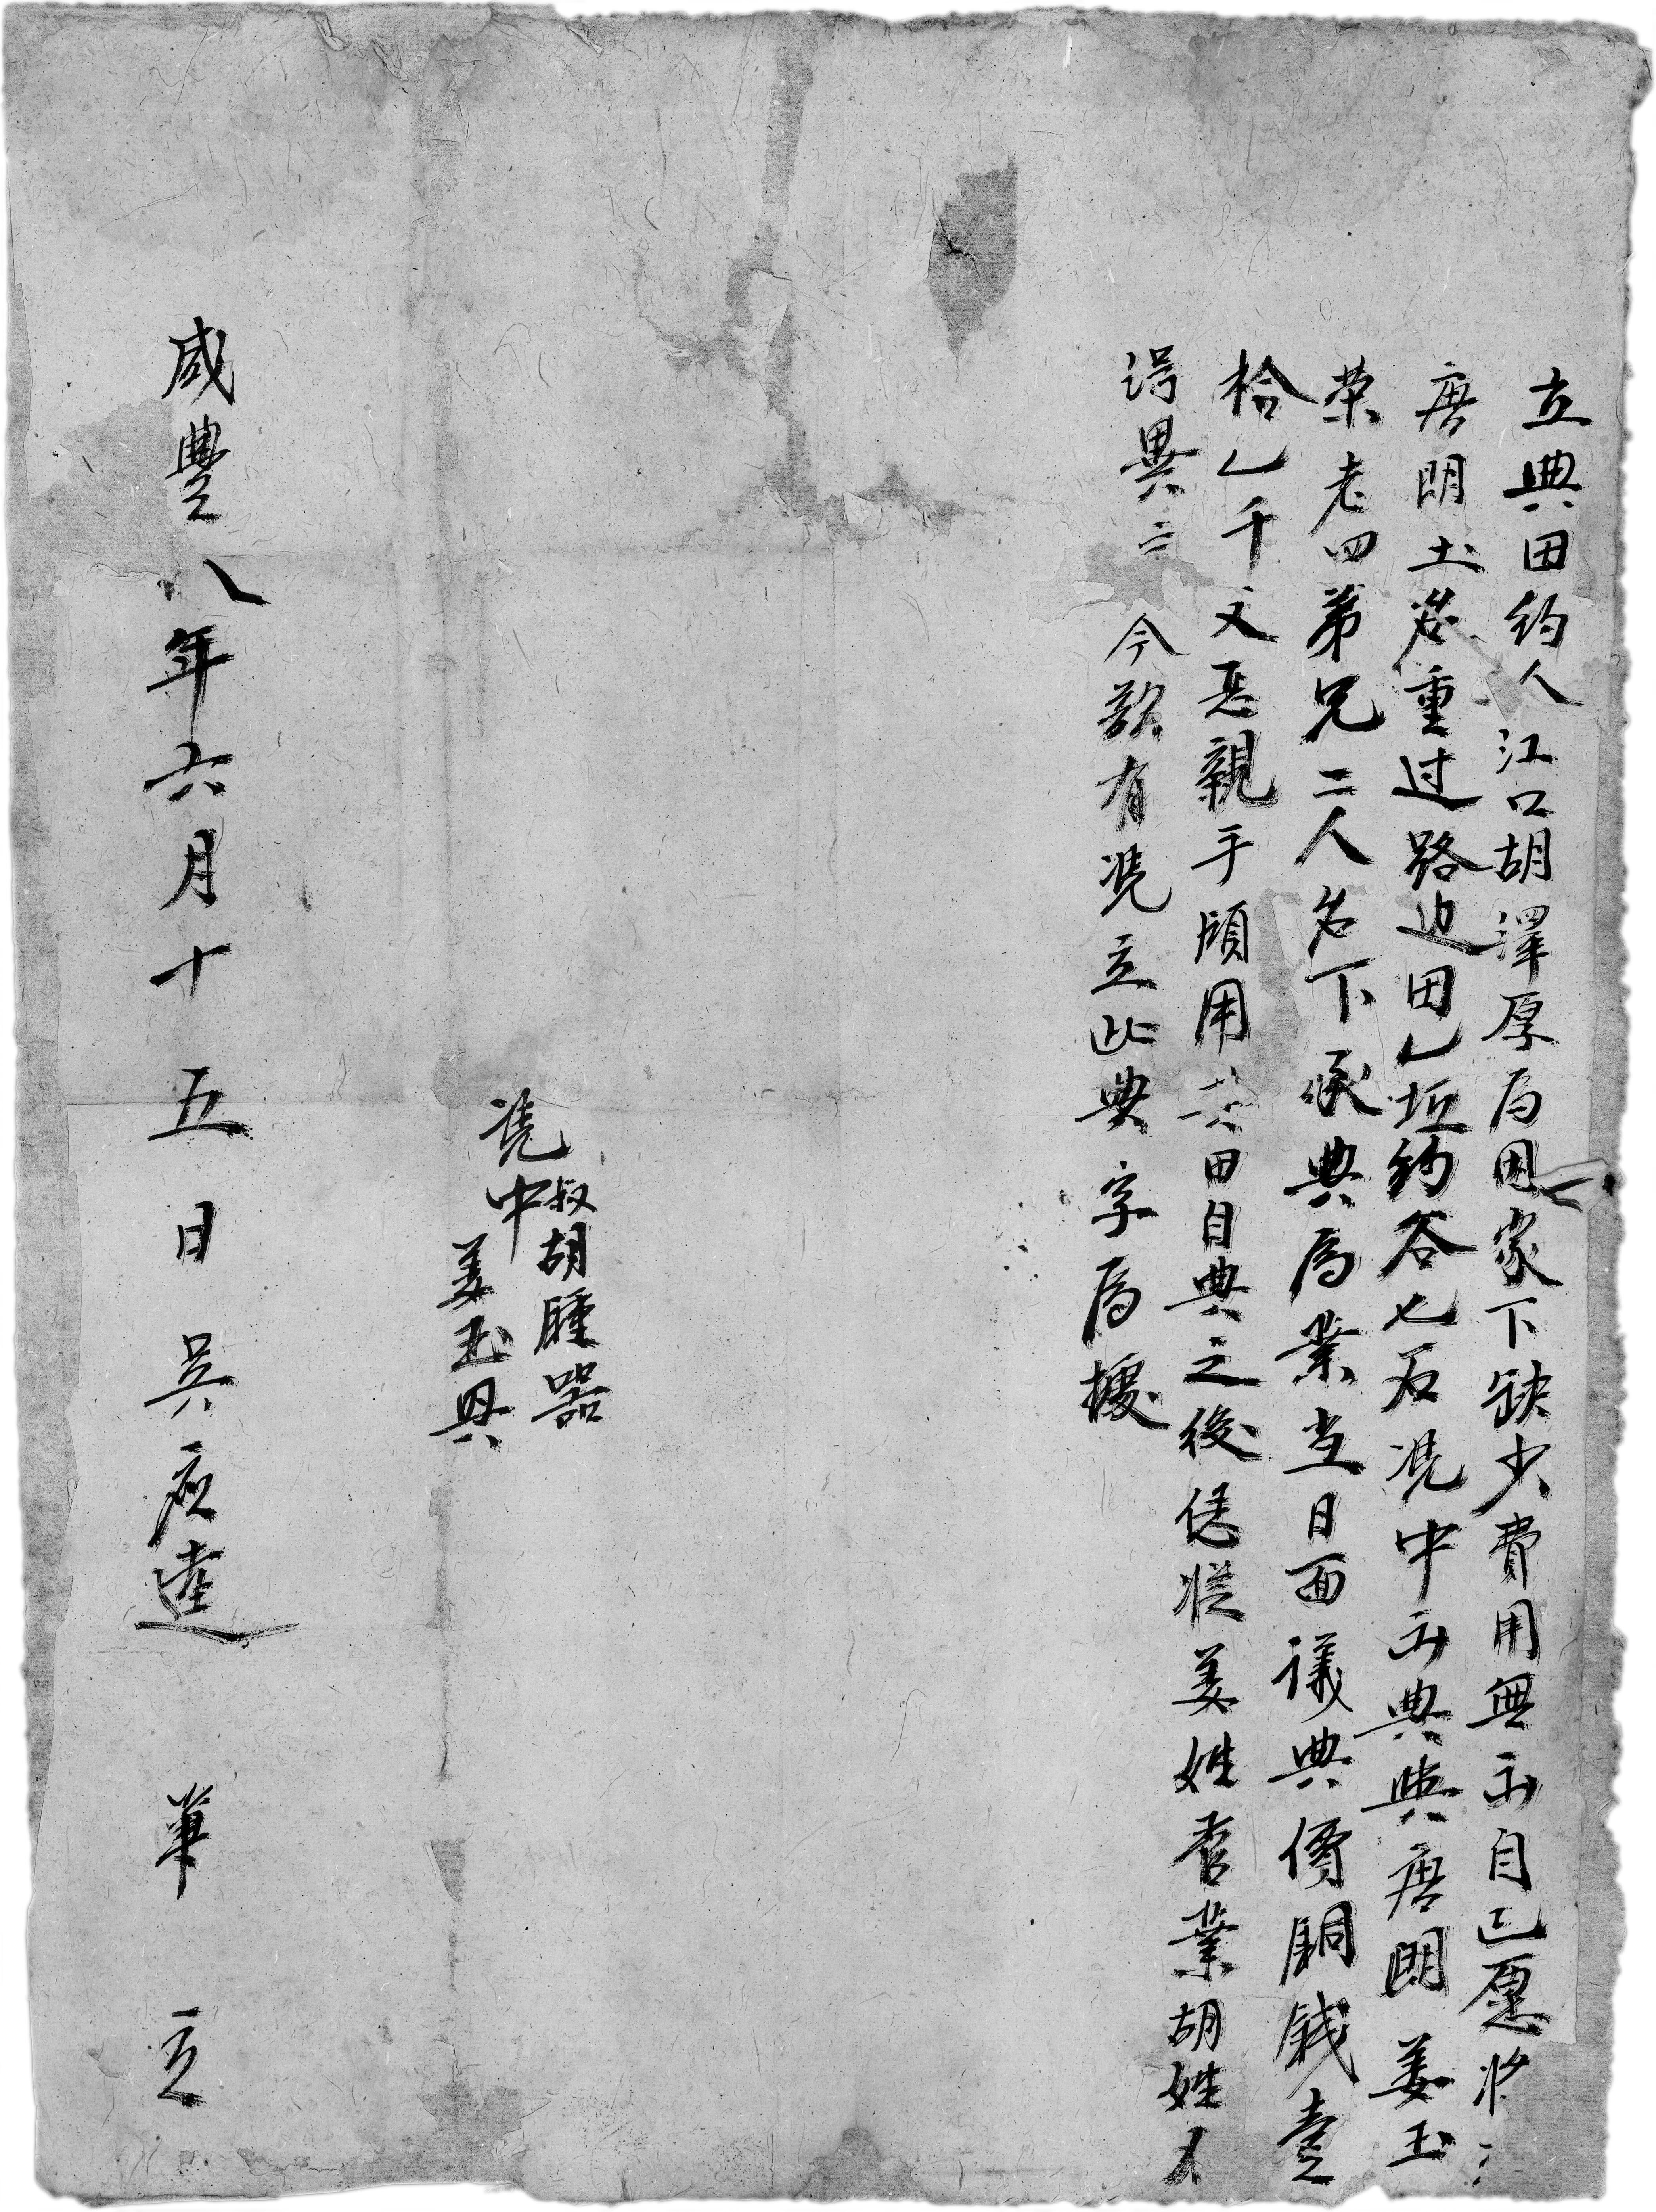 立典田约人江口胡澤厚為因家下缺少費用無出自己愿将
唐朗土名重过路边田乚坵约谷七石凭中出典與唐朗姜玉
荣老四弟兄二人名下承典為業当日面議典價銅錢壹
拾乚千文恁親手領用其田自典之後恁從姜姓管業胡姓不
得異言今欲有凭立此典字為據
凭中叔胡腫器
姜玉興
咸豐八年六月十五日吳应達筆立